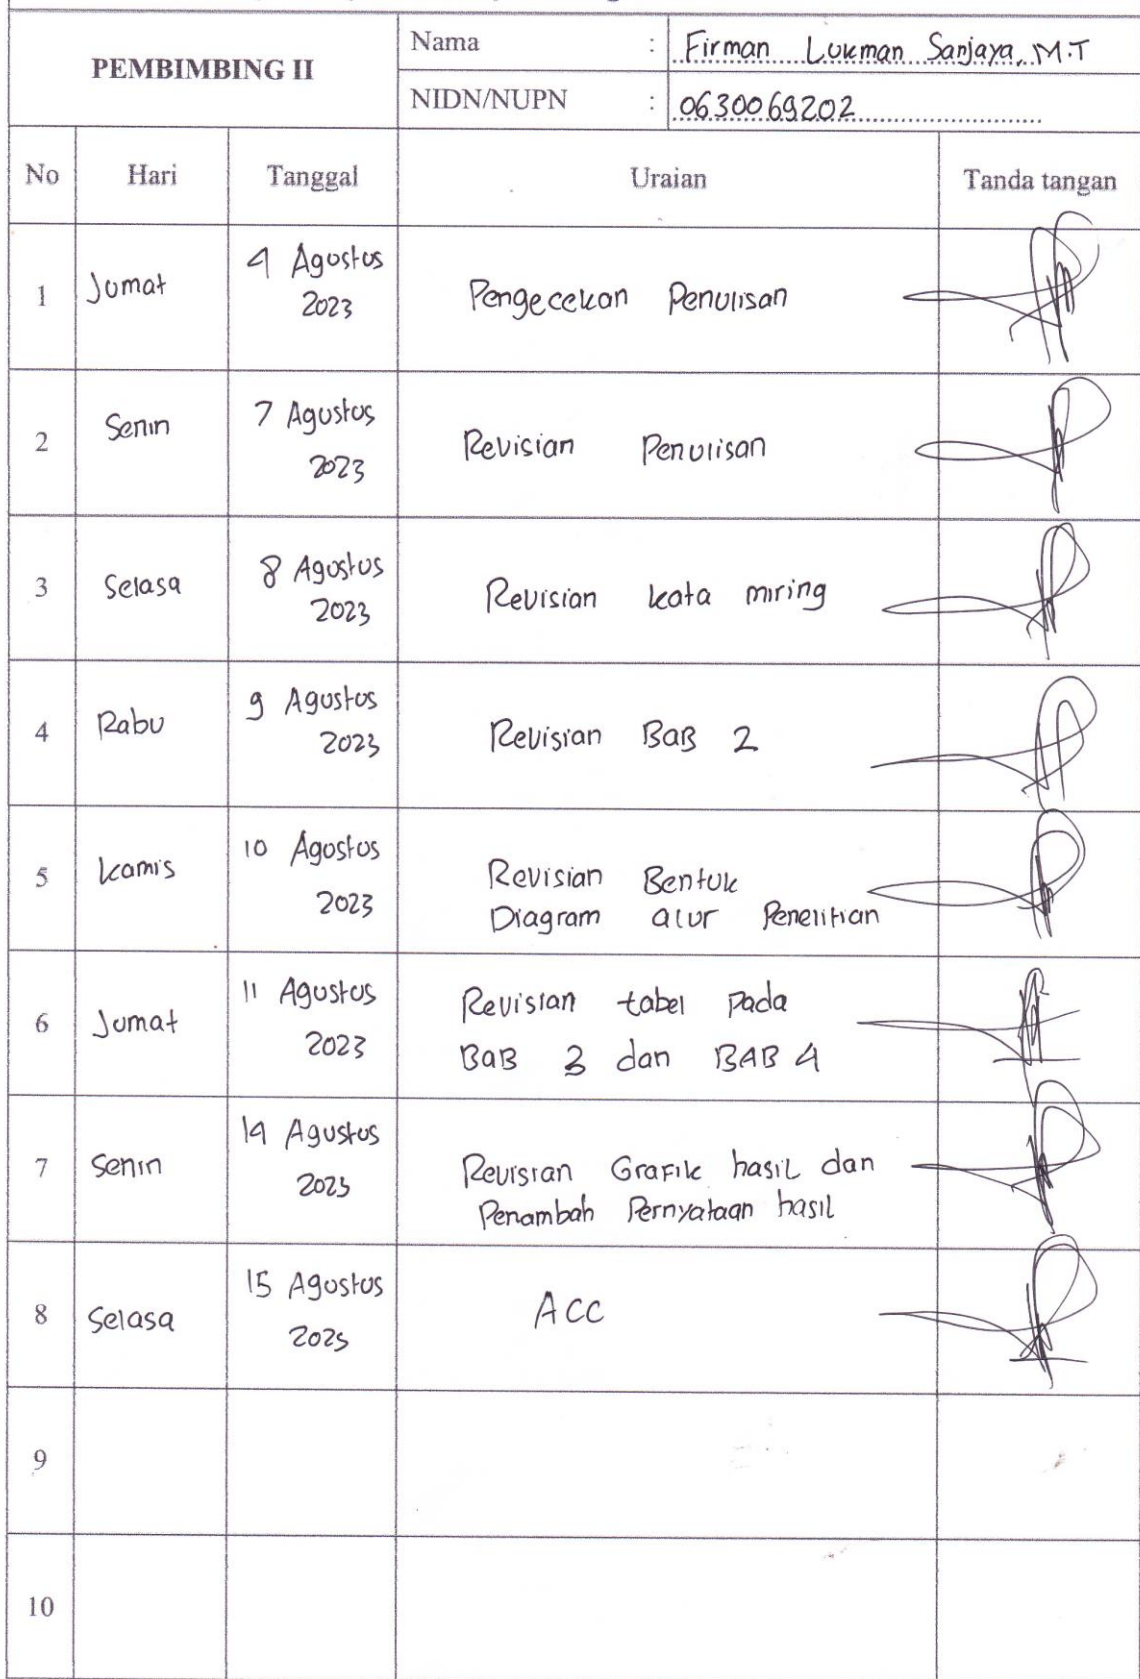 PEMBIMBING II
Nama : Firman Lukman Sanjaya, M.T
NIDN/NUPN : 0630069202
No Hari Tanggal Uraian Tanda tangan
1 Jumat 4 Agustus 2023 Pengecekan Penulisan
2 Senin 7 Agustus 2023 Revisian Penulisan
3 Selasa 8 Agustus 2023 Revisian kata miring
4 Rabu 9 Agustus 2023 Revisian BaB 2
5 Kamis 10 Agustus 2023 Revisian Bentuk
Diagram alur Penelitian
6 Jumat 11 Agustus 2023 Revisian tabel pada
BaB 3 dan BAB 4
7 Senin 14 Agustus 2023 Revisian Grafik hasil dan
Penambah Pernyataan hasil
8 Selasa 15 Agustus 2023 ACC
9
10